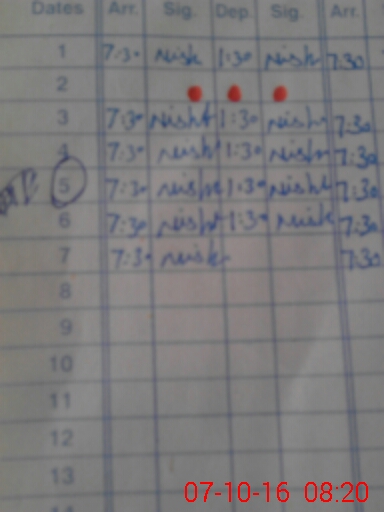 Dates Arr. Sig. Dep. Sig. Arr.
1 7:30 Nisht 1:30 Nisht 7:30
2
3 7:30 Nisht 1:30 Nisht 7:30
4 7:30 Nisht 1:30 Nisht 7:30
5 7:30 Nisht 1:30 Nisht 7:30
6 7:30 Nisht 1:30 Nisht 7:30
7 7:30 Nisht 7:30
8
9
10
11
12
13
07-10-16 08:20